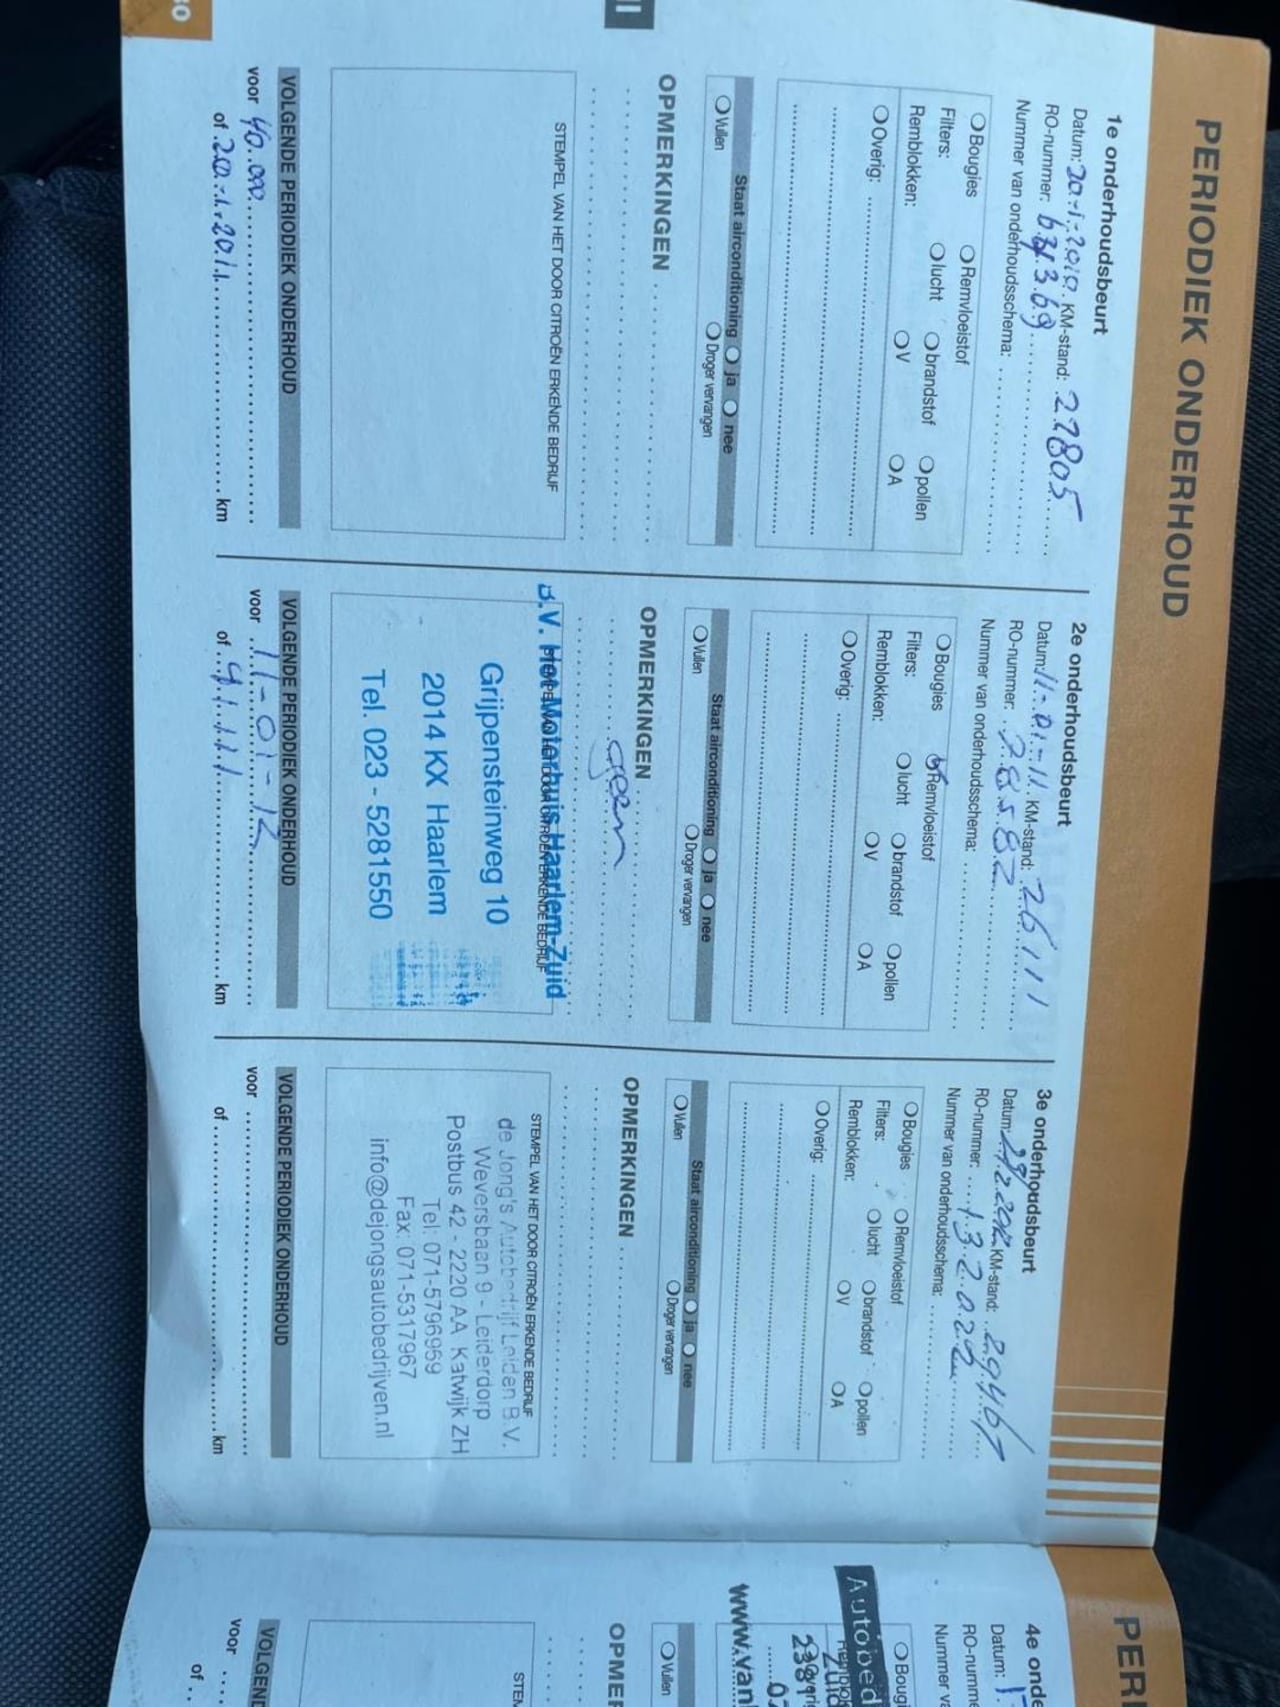 PERIODIEK ONDERHOUD
1e onderhoudsbeurt
Datum: 20-1-2010 KM-stand: 22805
RO-nummer:
Nummer van onderhoudsschema:
Bougies Remvloeistof
Filters: lucht brandstof pollen
Remblokken: V A
Overig:
Staat airconditioning ja nee
Vullen Droger vervangen
OPMERKINGEN
STEMPEL VAN HET DOOR CITROËN ERKENDE BEDRIJF
VOLGENDE PERIODIEK ONDERHOUD
voor 40.000
of 20-1-2011 km
2e onderhoudsbeurt
Datum: 11-01-11 KM-stand: 26111
RO-nummer: 78582
Nummer van onderhoudsschema:
Bougies Remvloeistof
Filters: lucht brandstof pollen
Remblokken: V A
Overig:
Staat airconditioning ja nee
Vullen Droger vervangen
OPMERKINGEN
geen
B.V. Het Motorhuis Haarlem-Zuid
Grijpensteinweg 10
2014 KX Haarlem
Tel. 023 - 5281550
VOLGENDE PERIODIEK ONDERHOUD
voor 11-01-12
of 41.111 km
3e onderhoudsbeurt
Datum: KM-stand: 29467
RO-nummer:
Nummer van onderhoudsschema:
Bougies Remvloeistof
Filters: lucht brandstof pollen
Remblokken: V A
Overig:
Staat airconditioning ja nee
Vullen Droger vervangen
OPMERKINGEN
STEMPEL VAN HET DOOR CITROËN ERKENDE BEDRIJF
de Jong's Autobedrijf Leiden B.V.
Weversbaan 9 - Leiderdorp
Postbus 42 - 2220 AA Katwijk ZH
Tel: 071-5796969
Fax: 071-5317967
info@dejongsautobedrijven.nl
VOLGENDE PERIODIEK ONDERHOUD
voor
of km
PERI
4e onde
Datum:
RO-numme
Nummer va
Bougi
Autobed
www.van
Vullen
OPMER
STEM
VOLGEND
voor
of